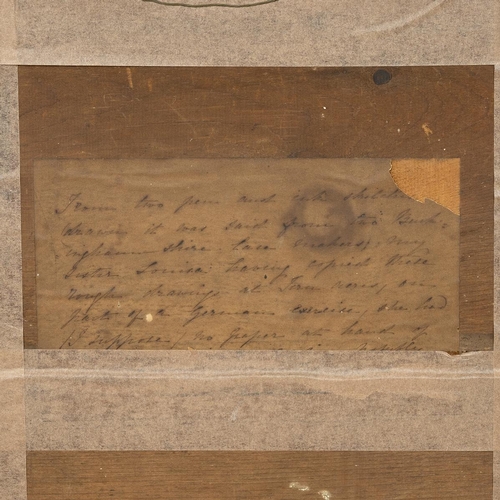 From two pen and ink sketches
drawn it was said from two Buck-
inghamshire lace makers; my
Sister Louisa having copied these
rough drawings at
part of a German exercise, she had
I suppose, no paper at hand of